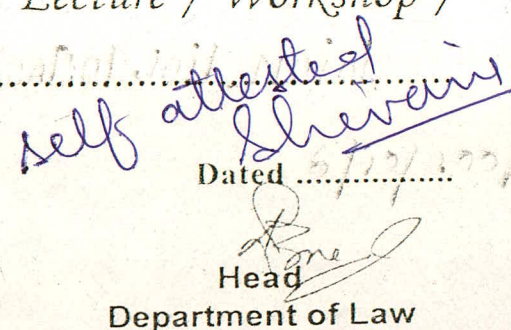 Lecture / Workshop /
self attested
Shivani
Dated ..................
Head
Department of Law